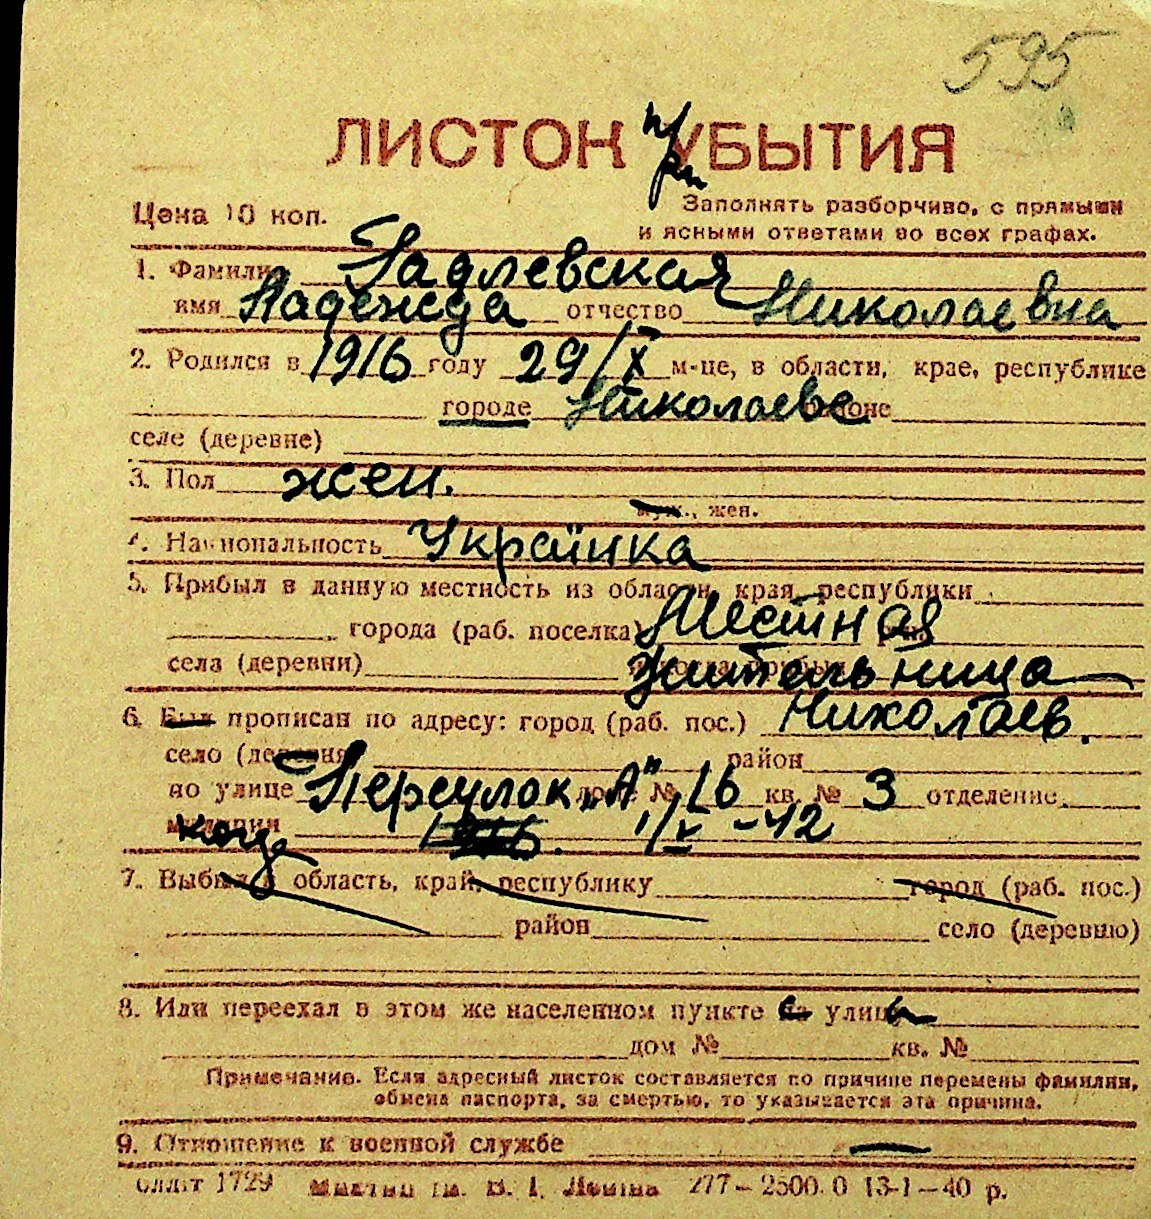 595
ЛИСТОК УБЫТИЯ
Цена 10 коп.
Заполнять разборчиво, с прямыми
и ясными ответами во всех графах.
1. Фамилия Надлевская
имя Надежда отчество Николаевна
2. Родился в 1916 году 29/X м-це, в области, крае, республике
городе Николаеве районе
селе (деревне)
3. Пол жен.
муж., жен.
4. Национальность Украинка
5. Прибыл в данную местность из области, края, республики
города (раб. поселка) Местная
села (деревни) жительница
6. Был прописан по адресу: город (раб. пос.) Николаев.
село (деревня) район
по улице Переулок „А" доме № 16 кв. № 3 отделение
милиции 1/V-42
7. Выбыл в область, край, республику город (раб. пос.)
район село (деревню)
8. Или переехал в этом же населенном пункте с улицы
дом № кв. №
Примечание. Если адресный листок составляется по причине перемены фамилии,
обмена паспорта, за смертью, то указывается эта причина.
9. Отношение к военной службе —
1729 им. В. И. Ленина 277—2500.0 13-1—40 р.